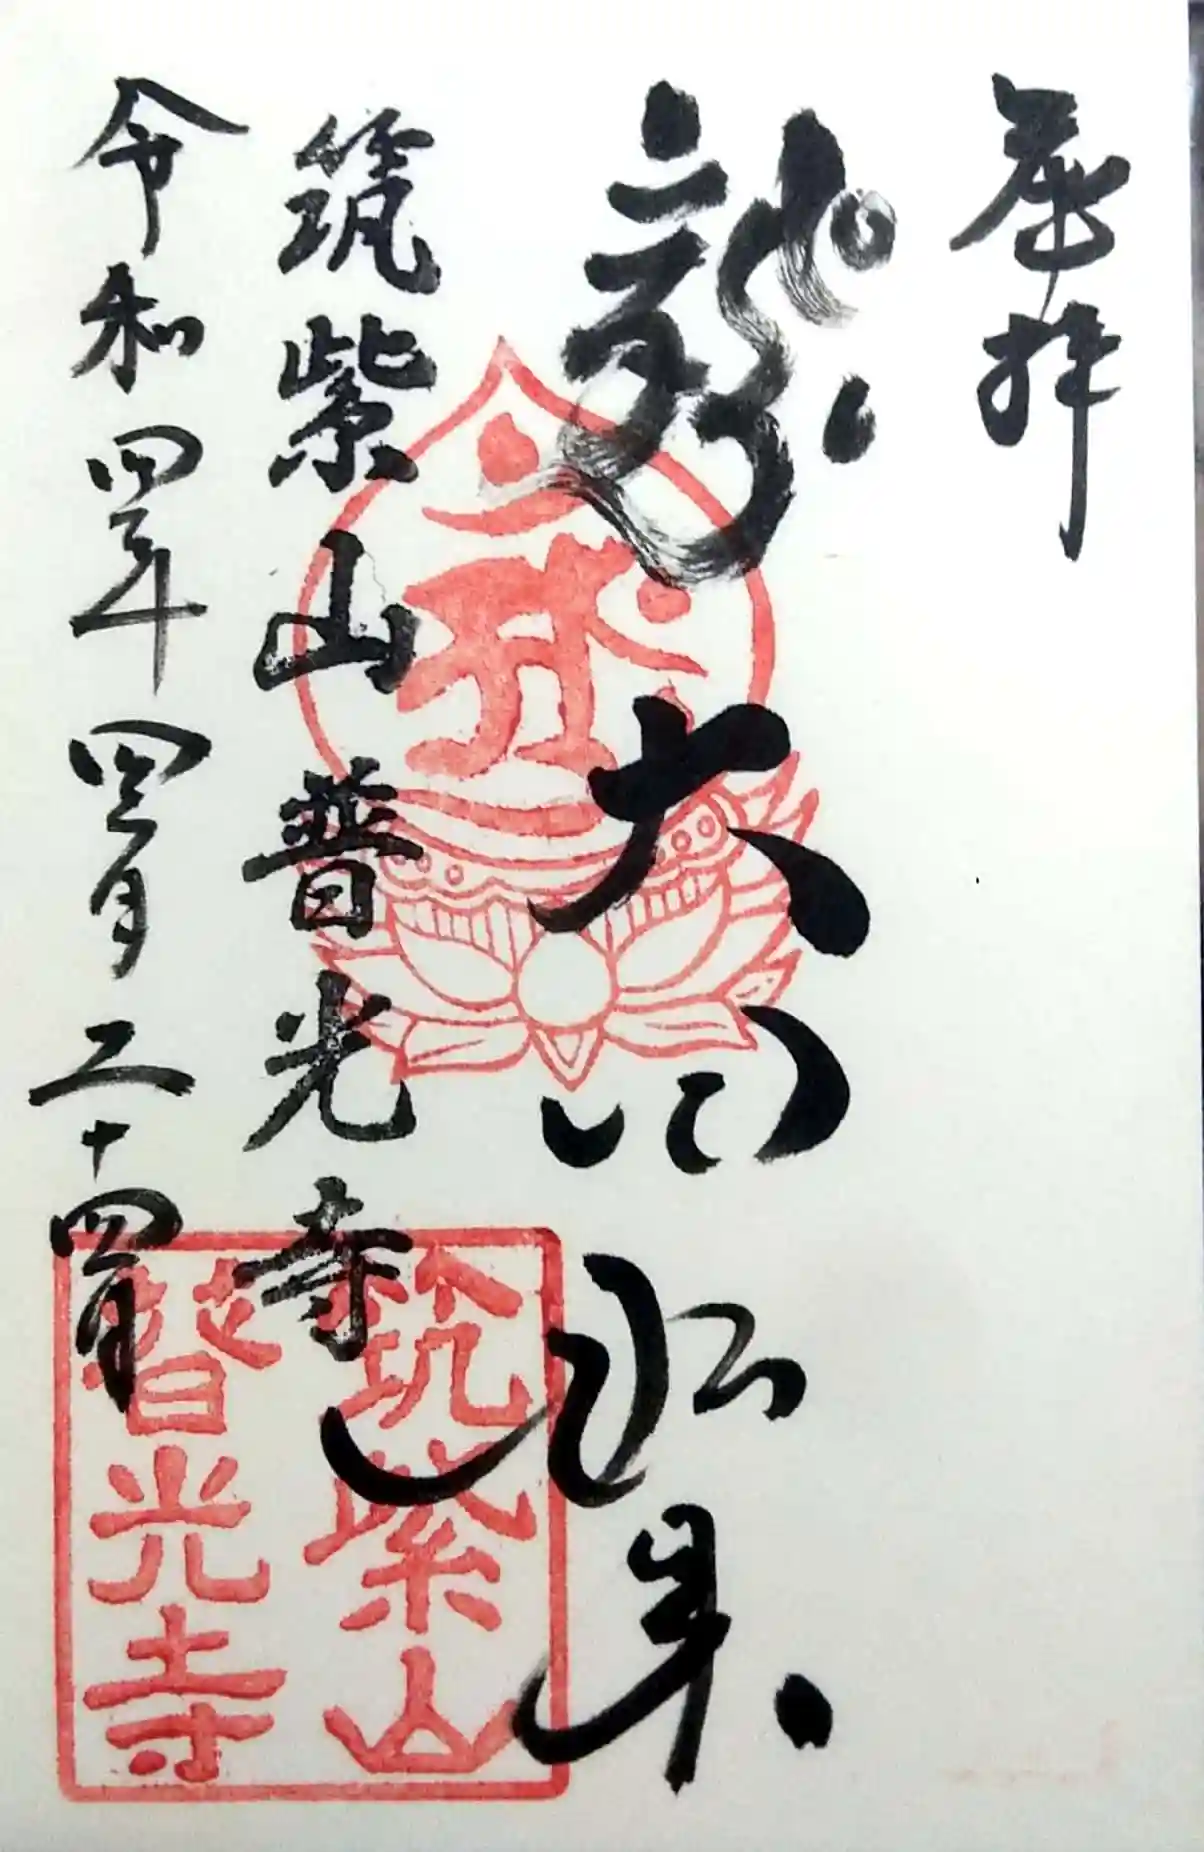 奉拝
大
筑紫山 普光寺
令和四年四月二十四日
筑紫山
普光寺